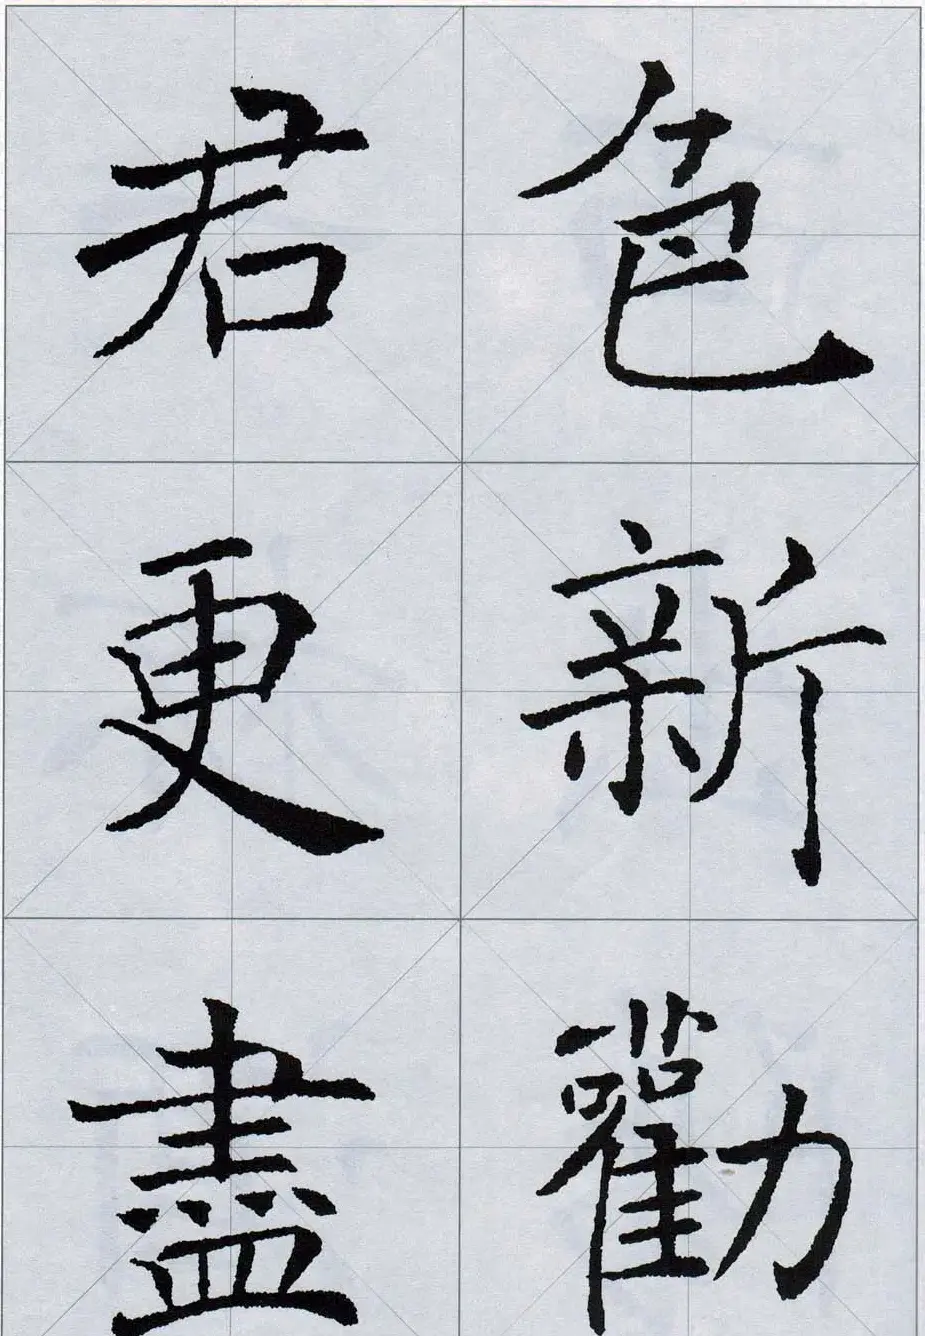 色新勸
君更盡